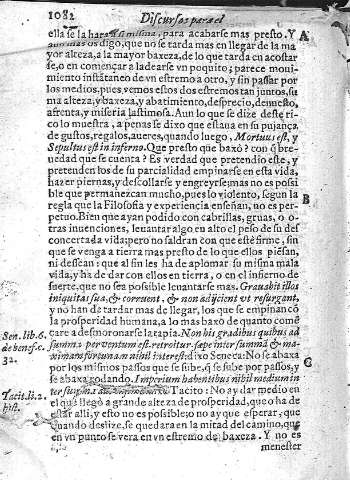 1082
Discursos para el
ella se la hara a si misma, para acabarse mas presto. Y A
aun mas os digo, que no se tarda mas en llegar de la ma
yor alteza, a la mayor baxeza, de lo que tarda en acostar
se, o en començar a ladearse vn poquito; parece moui
miento instãtaneo de vn estremo a otro, y sin passar por
los medios, pues vemos estos dos estremos tan juntos, su
ma alteza, y baxeza, y abatimiento, desprecio, denuesto,
afrenta, y miseria lastimosa. Aun lo que se dize deste ri-
co lo muestra, a penas se dixo que estaua en su pujança
de gustos, regalos, aueres, quando luego, Mortuus est, y
Sepultus est in inferno. Que presto que baxò? con q̃ bre-
uedad que se cuenta? Es verdad que pretendio este, y
pretenden los de su parcialidad empinarse en esta vida,
hazer piernas, y descollarse y engreyrse; mas no es possi
ble que permanezcan mucho, pues lo violento, segun la B
regla que la Filosofia y experiencia enseñan, no es per-
petuo. Bien que ayan podido con cabrillas, gruas, o o-
tras inuenciones, leuantar algo en alto el peso de su des
concertada vida; pero no saldran con que estè firme, sin
que se venga a tierra mas presto de lo que ellos piẽsan,
ni dessean: que al fin les ha de aplomar su misma mala
vida, y ha de dar con ellos en tierra, o en el infierno de
suerte, que no sea possible leuantarse mas. Grauabit illos
iniquitas sua, & corruent, & non adijcient vt resurgant,
y no han de tardar mas de llegar, los que se empinan cõ
la prosperidad humana, a lo mas baxo de quanto come
Sen. lib. 6. de benef. c. 32.
care a desmoronarse la tapia. Non his gradibus quibus ad
summa peruentum est, retroitur. sæpe inter summã & ma-
ximam fortunam nihil interest: dixo Seneca: No se abaxa C
por los mismos passos que se sube, q̃ se sube por passos, y
se abaxa godando. Imperium habentibus nihil medium in
Tacit. li. 2. hist.
Tacito: No ay dar medio en
el que llegò a grande alteza de prosperidad, que o ha de
estar alli, y esto no es possible; o no ay que esperar, que
quando deslize, se quedara en la mitad del camino, que
en vn punto se vera en vn estremo de baxeza. Y no es
menester